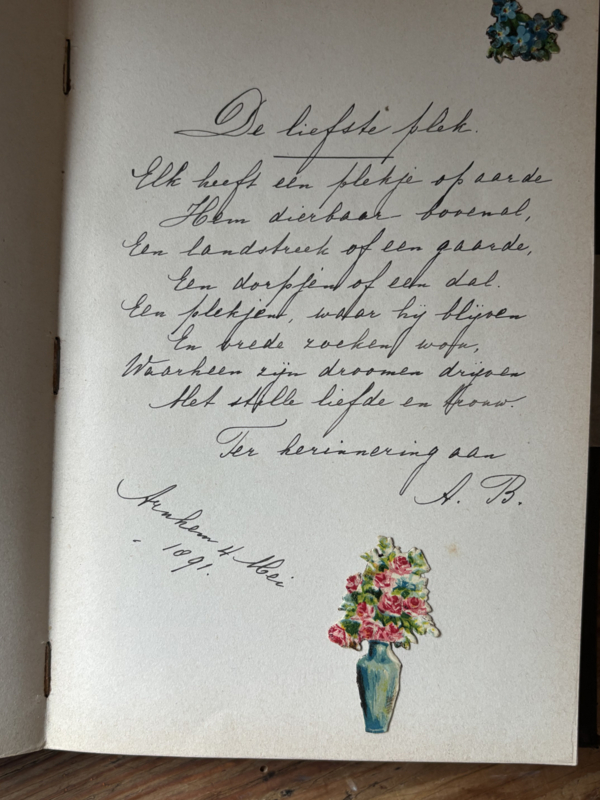 De liefste plek.
Elk heeft een plekje op aarde
Hem dierbaar bovenal,
Een landstreek of een gaarde,
Een dorpjen of een dal.
Een plekjen, waar hij blijven
En vrede zoeken wou,
Waarheen zijn droomen drijven
Met stille liefde en trouw.
Ter herinnering aan
A. B.
Arnhem 4 Mei
- 1891.